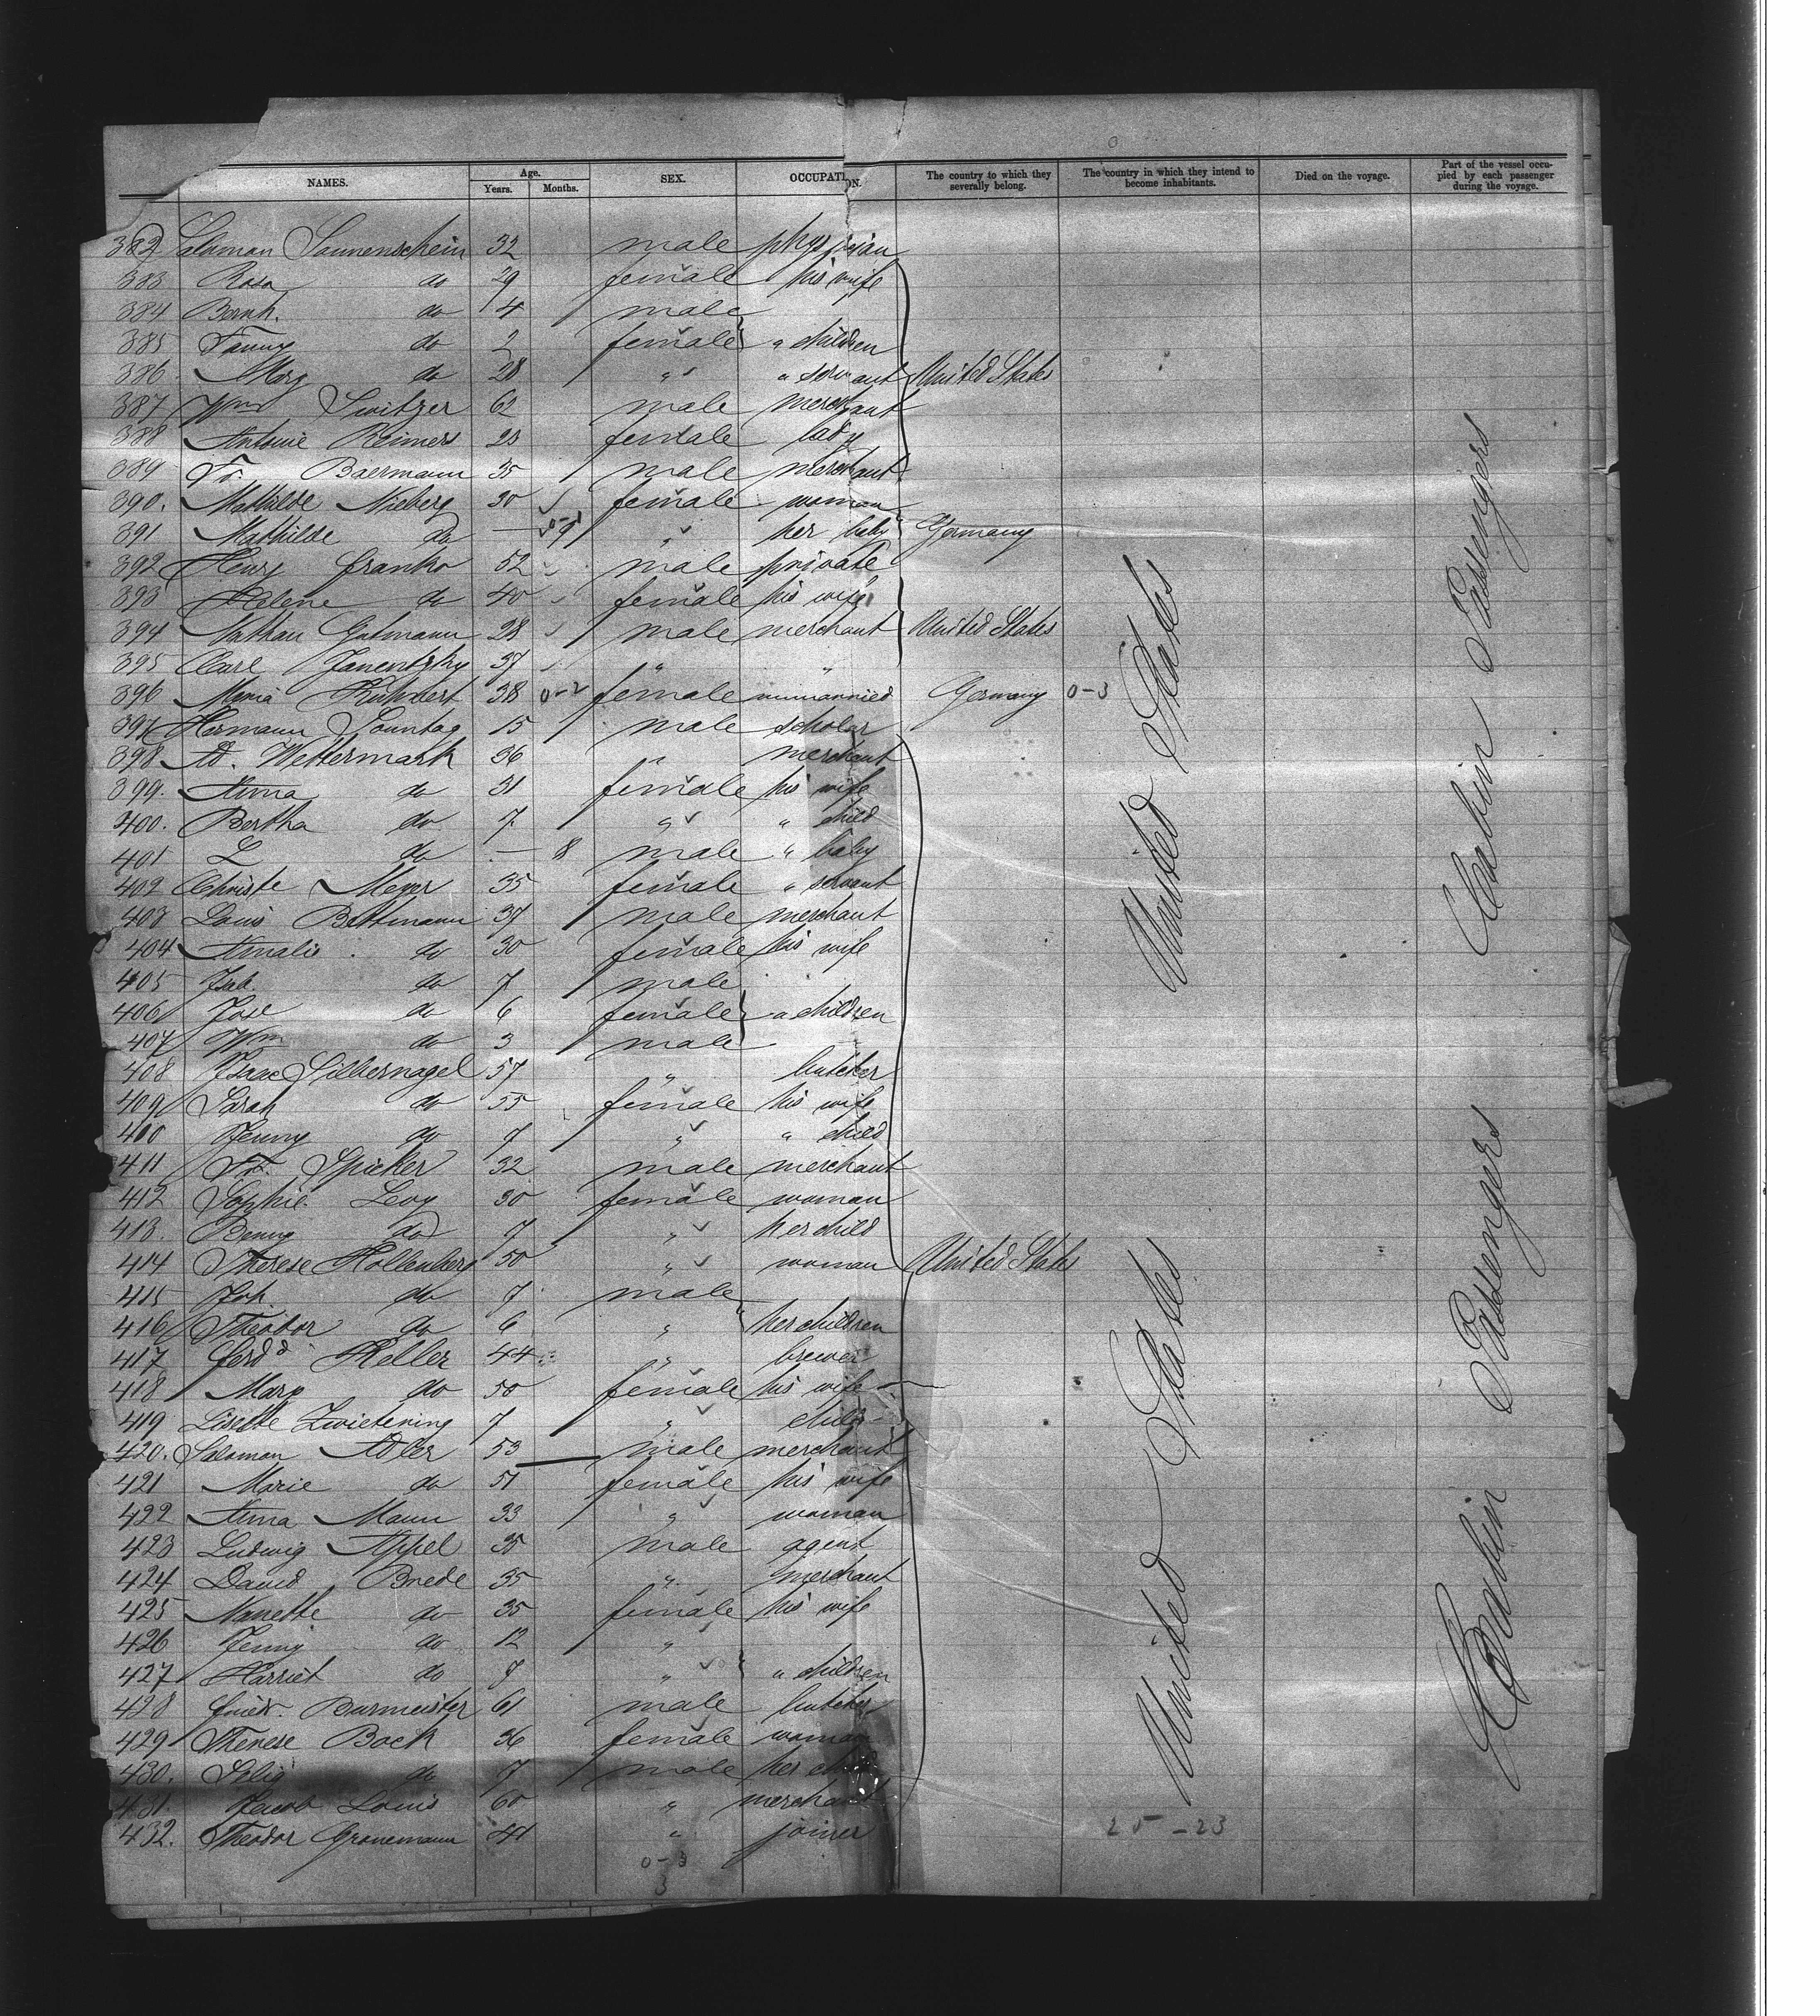 NAMES. Age. Years. Months. SEX. OCCUPATION. The country to which they severally belong. The country in which they intend to become inhabitants. Died on the voyage. Part of the vessel occupied by each passenger during the voyage.
382 Salomon Sonnenschein 32 male physician
383 Rosa do 29 female his wife
384 Bernh. do 4 male
385 Fanny do 2 female " children
386 Mary do 28 " " servant United States
387 Wm Switzer 62 male merchant
388 Antonie Reimers 23 female lady
389 Fr. Baermann 35 male merchant
390. Mathilde Nieberg 30 female woman
391 Mathilde do — " her baby Germany
392 Henry Franko 52 male private
393 Helene do 40 female his wife
394 Nathan Gutmann 28 male merchant United States
395 Carl Janentzky 37 " "
396 Kuhnert 38 0-2 female unmarried Germany 0-3
397 Hermann Sonntag 15 male scholar
398 Ad. Wettermark 36 " merchant
399. Anna do 31 female his wife
400. Bertha do 7 " " child
401 L do — 8 male " baby
402 Christe Meyer 35 female " servant
403 Louis Bettmann 37 male merchant
404 Amalie do 30 female his wife
405 do 7 male
406 Jose do 6 female " children
407 Wm do 3 male
408 Isaac Silbernagel 57 " butcher
409 Sarah do 55 female his wife
410 Jenny do 7 " " child
411 Fr. Spicker 32 male merchant
412 Sophie Levy 30 female woman
413. Benny do 7 " her child
414 Therese Hollenberg 50 " woman United States
415 Joh do 7 male
416 Theodor do 6 " her children
417 Ferdd Keller 44 " brewer
418 Mary do 50 female his wife
419 Lisette Zwietering 7 " child
420. Salomon Adler 53 male merchant
421 Marie do 51 female his wife
422 Anna Mann 33 " woman
423 Ludwig Appel 35 male agent
424 David Brede 35 " merchant
425 Nanette do 35 female his wife
426 Jenny do 12 "
427 Harriet do 7 " " children
428 Fried. Burmeister 61 male butcher
429 Therese Bock 36 female woman
430. Selig do 7 male her child
431. Jacob Louis 60 " merchant
432. Theodor Gronemann 41 " joiner
United States
Cabin Passengers
United States
Cabin Passengers
25 - 23
0-3
3